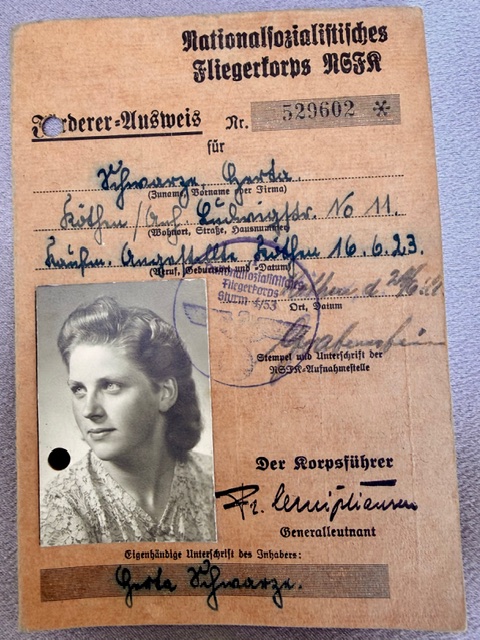 Nationalsozialistisches
Fliegerkorps NSFK
Förderer-Ausweis Nr. 529602 *
für
Schwarze, Gerta.
(Zuname, Vorname oder Firma)
Köthen / Anh. Ludwigstr. No 11.
(Wohnort, Straße, Hausnummer)
Kaufm. Angestellte Köthen 16.6.23.
(Beruf, Geburtsort und -Datum)
Nationalsozialistisches
Fliegerkorps
Sturm 4/53
Köthen, d.
Ort, Datum
Stempel und Unterschrift der
NSFK-Aufnahmestelle
Der Korpsführer
Fr. Christiansen
Generalleutnant
Eigenhändige Unterschrift des Inhabers:
Gerta Schwarze.